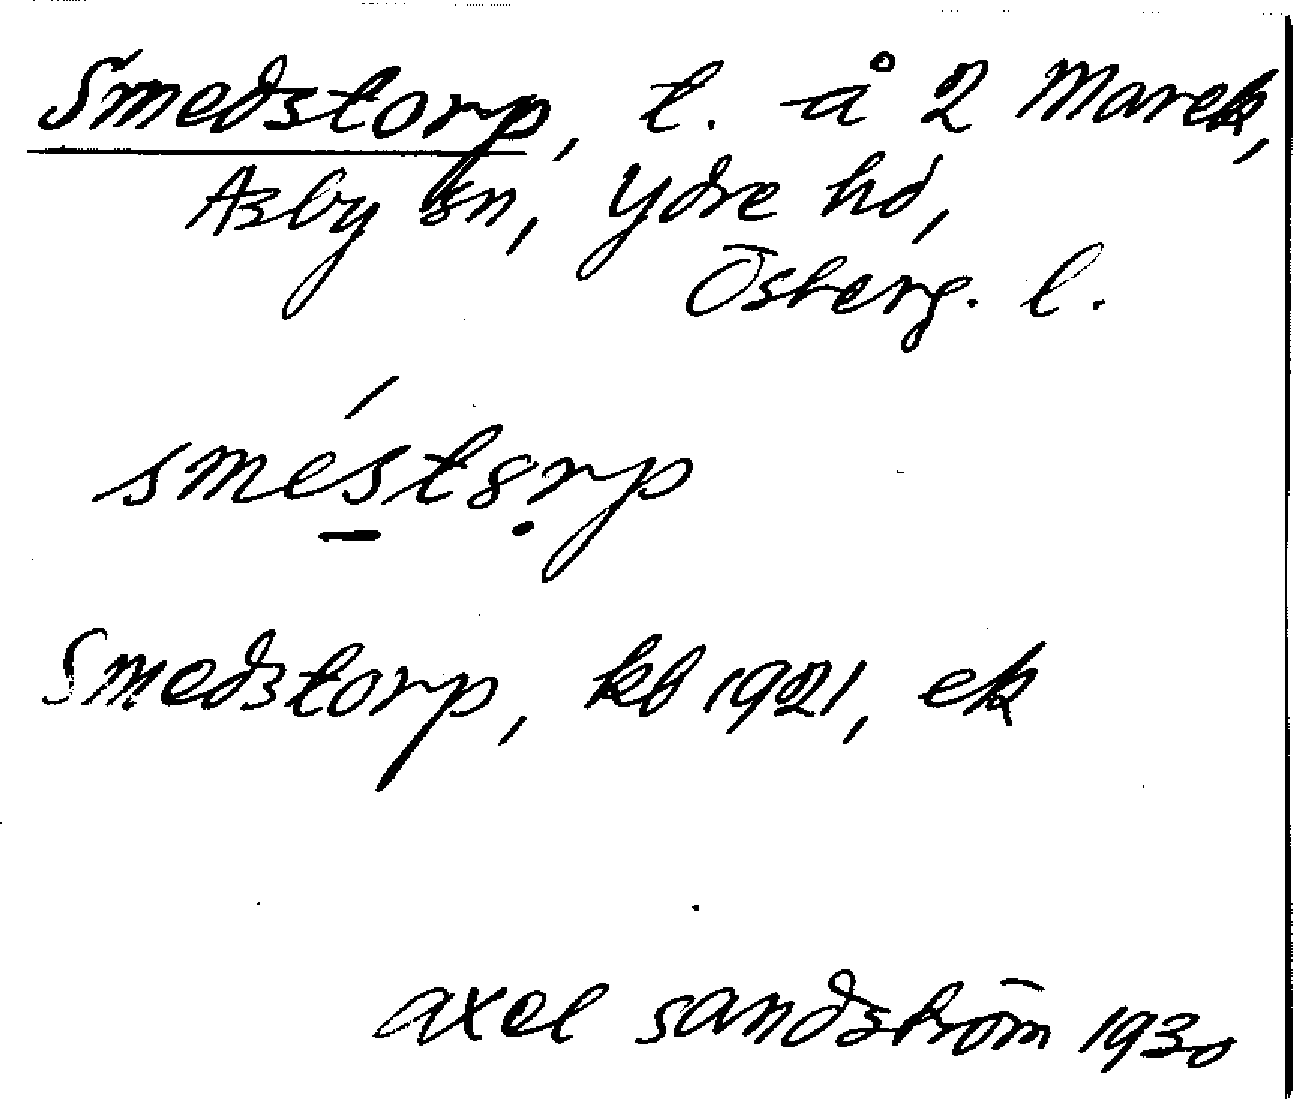 Smedstorp, t. å 2 Marek,
Asby sn, Ydre hd,
Österg. l.
sméstǫrp
Smedstorp, kb 1921, ek
axel sandström 1930